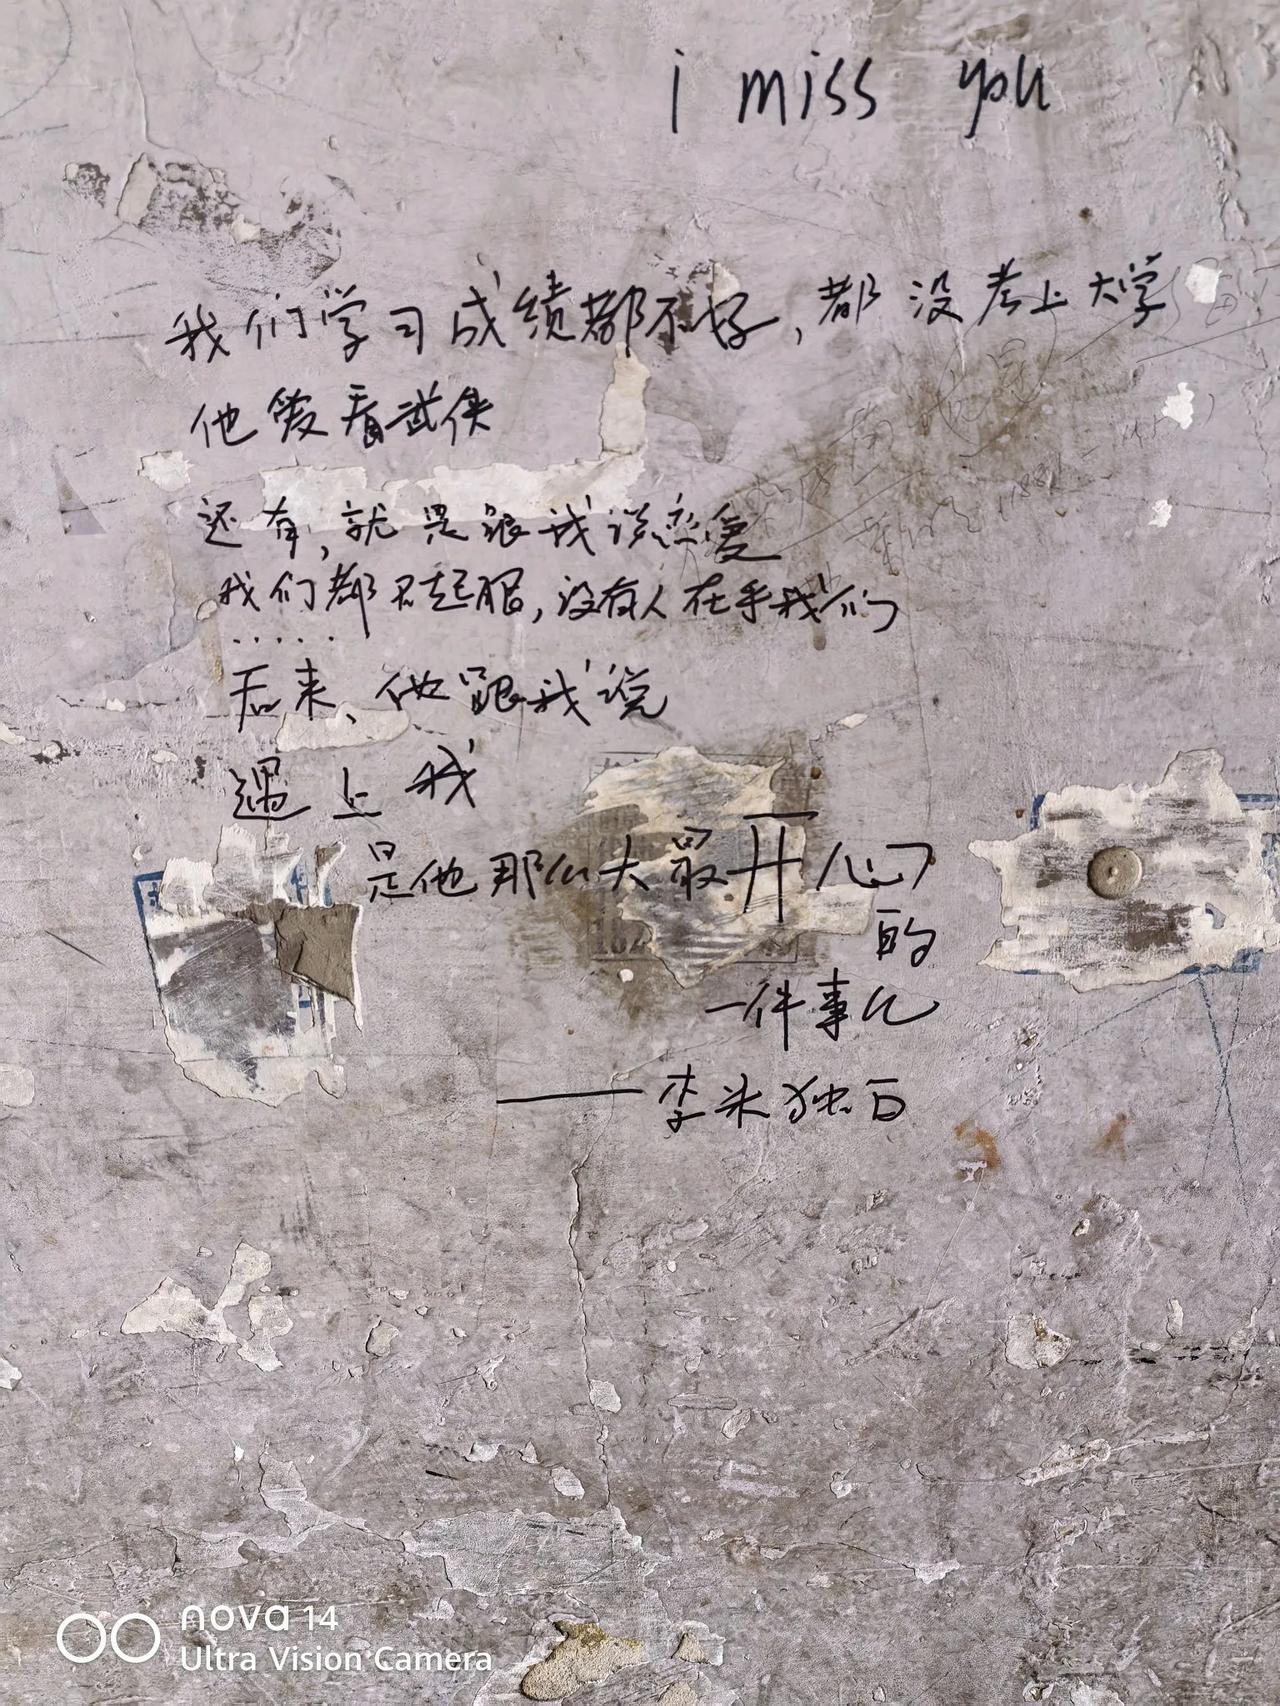 i miss you
我们学习成绩都不好,都没考上大学
他爱看武侠
还有,就是跟我谈恋爱
我们都不起眼,没有人在乎我们
......
后来、他跟我说
遇上我
是他那么大最开心
的
一件事儿
——李米独白
nova 14
Ultra Vision Camera